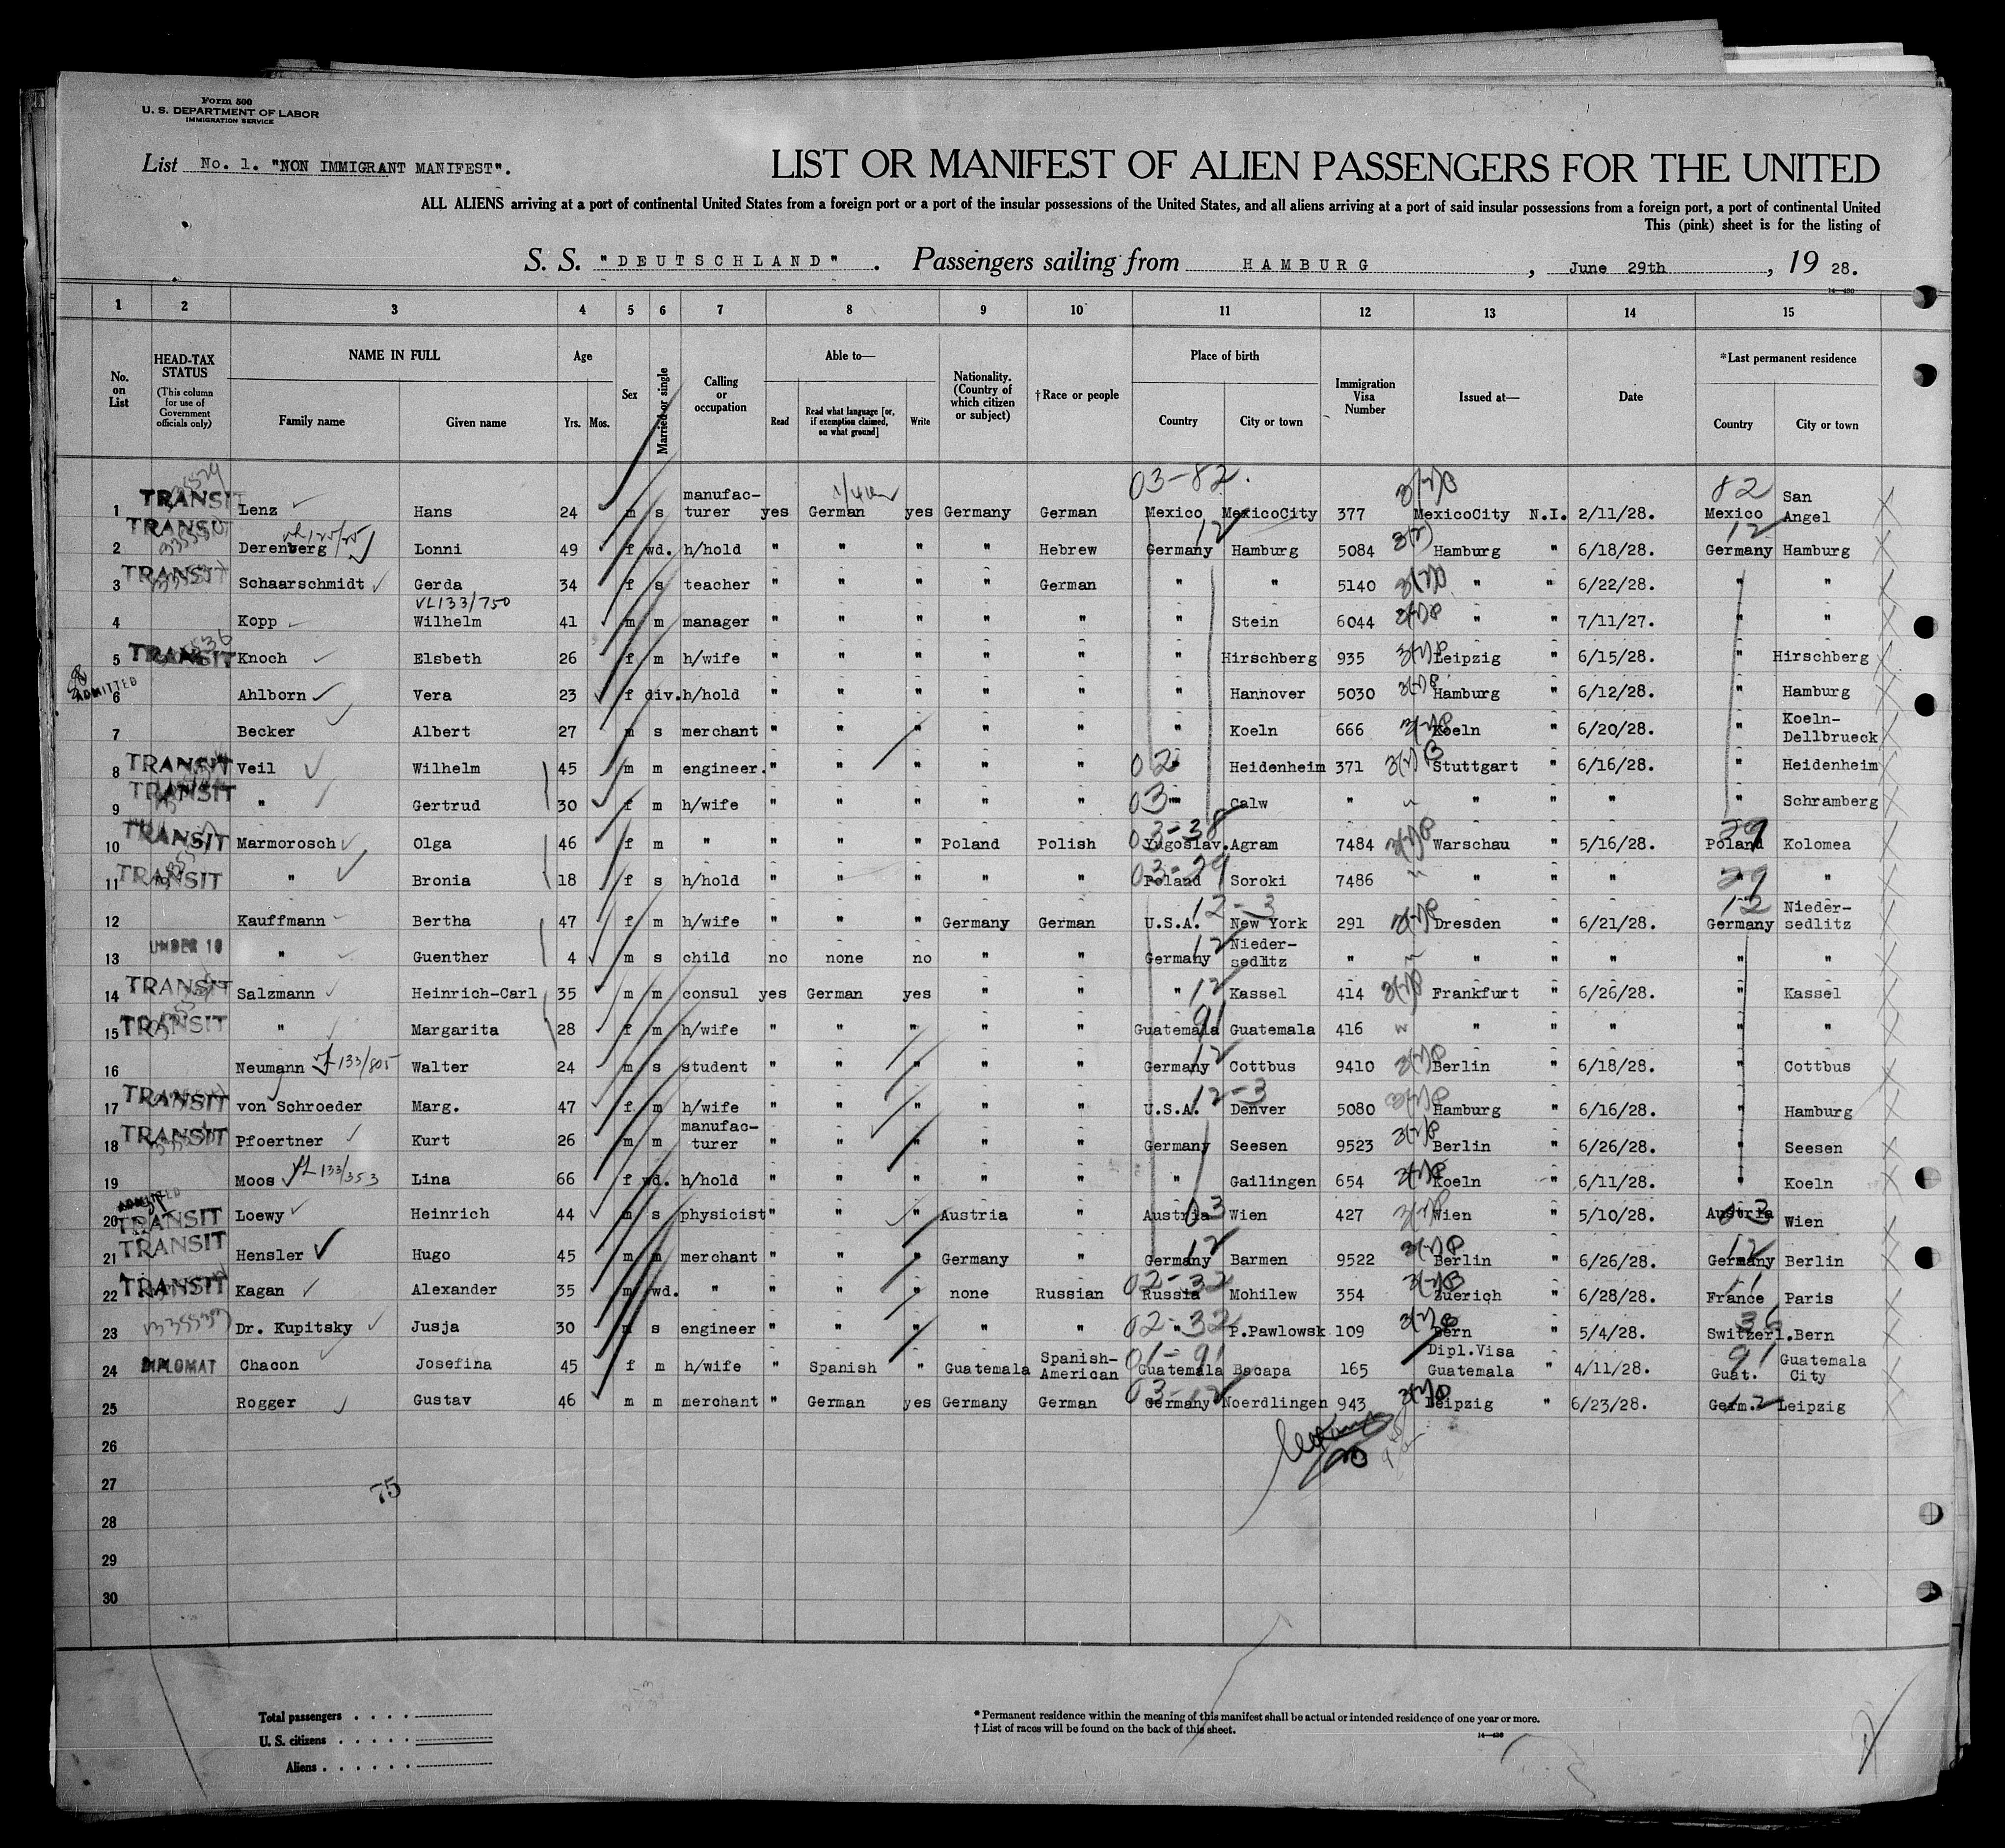 Form 500
U. S. DEPARTMENT OF LABOR
IMMIGRATION SERVICE
List No. 1. "NON IMMIGRANT MANIFEST".
LIST OR MANIFEST OF ALIEN PASSENGERS FOR THE UNITED
ALL ALIENS arriving at a port of continental United States from a foreign port or a port of the insular possessions of the United States, and all aliens arriving at a port of said insular possessions from a foreign port, a port of continental United
This (pink) sheet is for the listing of
S. S. "DEUTSCHLAND". Passengers sailing from HAMBURG, June 29th, 19 28.
1 2 3 4 5 6 7 8 9 10 11 12 13 14 15
No. on List
HEAD-TAX STATUS (This column for use of Government officials only)
NAME IN FULL Family name Given name
Age Yrs. Mos.
Sex
Married or single
Calling or occupation
Able to— Read Read what language [or, if exemption claimed, on what ground] Write
Nationality. (Country of which citizen or subject)
†Race or people
Place of birth Country City or town
Immigration Visa Number
Issued at—
Date
*Last permanent residence Country City or town
03-82. 82
1 TRANSIT Lenz Hans 24 m s manufac-turer yes German yes Germany German Mexico MexicoCity 377 MexicoCity N.I. 2/11/28. Mexico San Angel
2 TRANSIT Derenberg Lonni 49 f wd. h/hold " " " " Hebrew Germany 12 Hamburg 5084 Hamburg " 6/18/28. Germany 12 Hamburg
3 TRANSIT Schaarschmidt Gerda 34 f s teacher " " " " German " " 5140 " " 6/22/28. " "
VL133/750
4 Kopp Wilhelm 41 m m manager " " " " " " Stein 6044 " " 7/11/27. " "
5 TRANSIT Knoch Elsbeth 26 f m h/wife " " " " " " Hirschberg 935 Leipzig " 6/15/28. " Hirschberg
6 ADMITTED Ahlborn Vera 23 f div. h/hold " " " " " " Hannover 5030 Hamburg " 6/12/28. " Hamburg
7 Becker Albert 27 m s merchant " " " " " " Koeln 666 Koeln " 6/20/28. " Koeln-Dellbrueck
8 TRANSIT Veil Wilhelm 45 m m engineer. " " " " " 02 " Heidenheim 371 Stuttgart " 6/16/28. " Heidenheim
9 TRANSIT " Gertrud 30 f m h/wife " " " " " 03 " Calw " " " " " Schramberg
10 TRANSIT Marmorosch Olga 46 f m " " " " Poland Polish 03-38 Yugoslav. Agram 7484 Warschau " 5/16/28. Poland 29 Kolomea
11 TRANSIT " Bronia 18 f s h/hold " " " " " 03-29 Poland Soroki 7486 " " " " 29 "
12 Kauffmann Bertha 47 f m h/wife " " " Germany German U.S.A. 12-3 New York 291 Dresden " 6/21/28. Germany 12 Nieder-sedlitz
13 UNDER 16 " Guenther 4 m s child no none no " " Germany 12 Nieder-sedlitz " " " " " "
14 TRANSIT Salzmann Heinrich-Carl 35 m m consul yes German yes " " " 12 Kassel 414 Frankfurt " 6/26/28. " Kassel
15 TRANSIT " Margarita 28 f m h/wife " " " " " Guatemala 91 Guatemala 416 " " " " "
16 Neumann 133/805 Walter 24 m s student " " " " " Germany 12 Cottbus 9410 Berlin " 6/18/28. " Cottbus
17 TRANSIT von Schroeder Marg. 47 f m h/wife " " " " " U.S.A. 12-3 Denver 5080 Hamburg " 6/16/28. " Hamburg
18 TRANSIT Pfoertner Kurt 26 m m manufac-turer " " " " " Germany Seesen 9523 Berlin " 6/26/28. " Seesen
19 Moos VL133/353 Lina 66 f wd. h/hold " " " " " " Gailingen 654 Koeln " 6/11/28. " Koeln
20 ADMITTED TRANSIT Loewy Heinrich 44 m s physicist " " " Austria " Austria 03 Wien 427 Wien " 5/10/28. Austria 03 Wien
21 TRANSIT Hensler Hugo 45 m m merchant " " " Germany " Germany 12 Barmen 9522 Berlin " 6/26/28. Germany 12 Berlin
22 TRANSIT Kagan Alexander 35 m wd. " " " " none Russian 02-32 Russia Mohilew 354 Zuerich " 6/28/28. France 11 Paris
23 Dr. Kupitsky Jusja 30 m s engineer " " " " " 02-32 " P.Pawlowsk 109 Bern " 5/4/28. 36 Switzerl. Bern
24 DIPLOMAT Chacon Josefina 45 f m h/wife " Spanish " Guatemala Spanish-American 01-91 Guatemala Bacapa 165 Dipl.Visa Guatemala " 4/11/28. 91 Guat. Guatemala City
25 Rogger Gustav 46 m m merchant " German yes Germany German 03-12 Germany Noerdlingen 943 Leipzig " 6/23/28. Germ. 12 Leipzig
26
27
75
28
29
30
Total passengers . . . .
U. S. citizens . . . . .
Aliens . . . . . .
* Permanent residence within the meaning of this manifest shall be actual or intended residence of one year or more.
† List of races will be found on the back of this sheet.
14—430